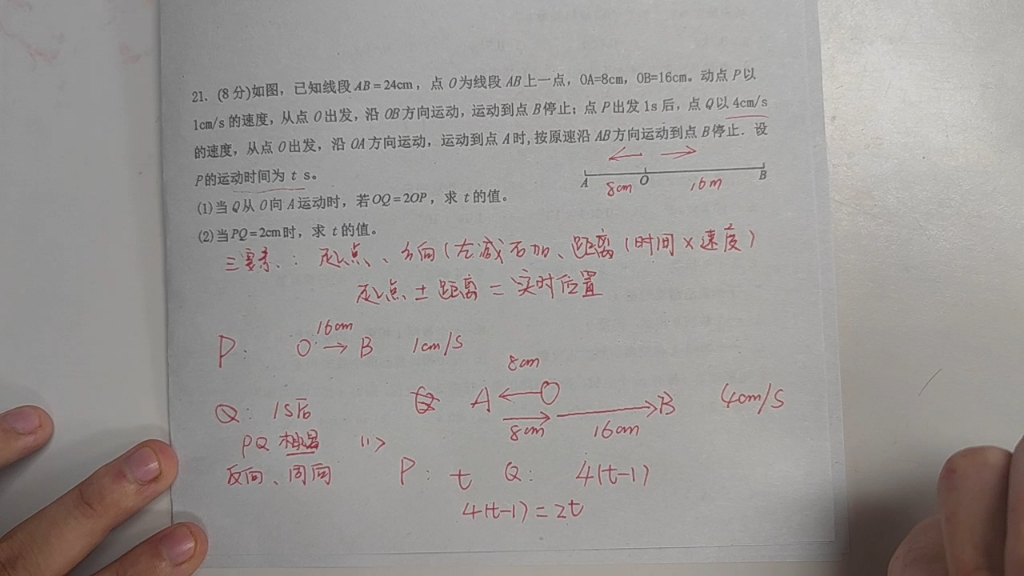 21. (8分)如图，已知线段AB=24cm，点O为线段AB上一点，OA=8cm，OB=16cm。动点P以
1cm/s的速度，从点O出发，沿OB方向运动，运动到点B停止；点P出发1s后，点Q以4cm/s
的速度，从点O出发，沿OA方向运动，运动到点A时,按原速沿AB方向运动到点B停止．设
P的运动时间为 t s。
A 8cm O 16m B
(1)当Q从O向A运动时，若OQ=2OP，求t的值。
(2)当PQ=2cm时，求t的值。
三要素：起点、方向(左减右加、距离(时间×速度)
起点±距离=实时位置
P: O 16cm → B 1cm/s
8cm
Q: 1s后 Q A ← O B 4cm/s
8cm 16cm
PQ相遇 (1)
反向、同向 P: t Q: 4(t-1)
4(t-1)=2t